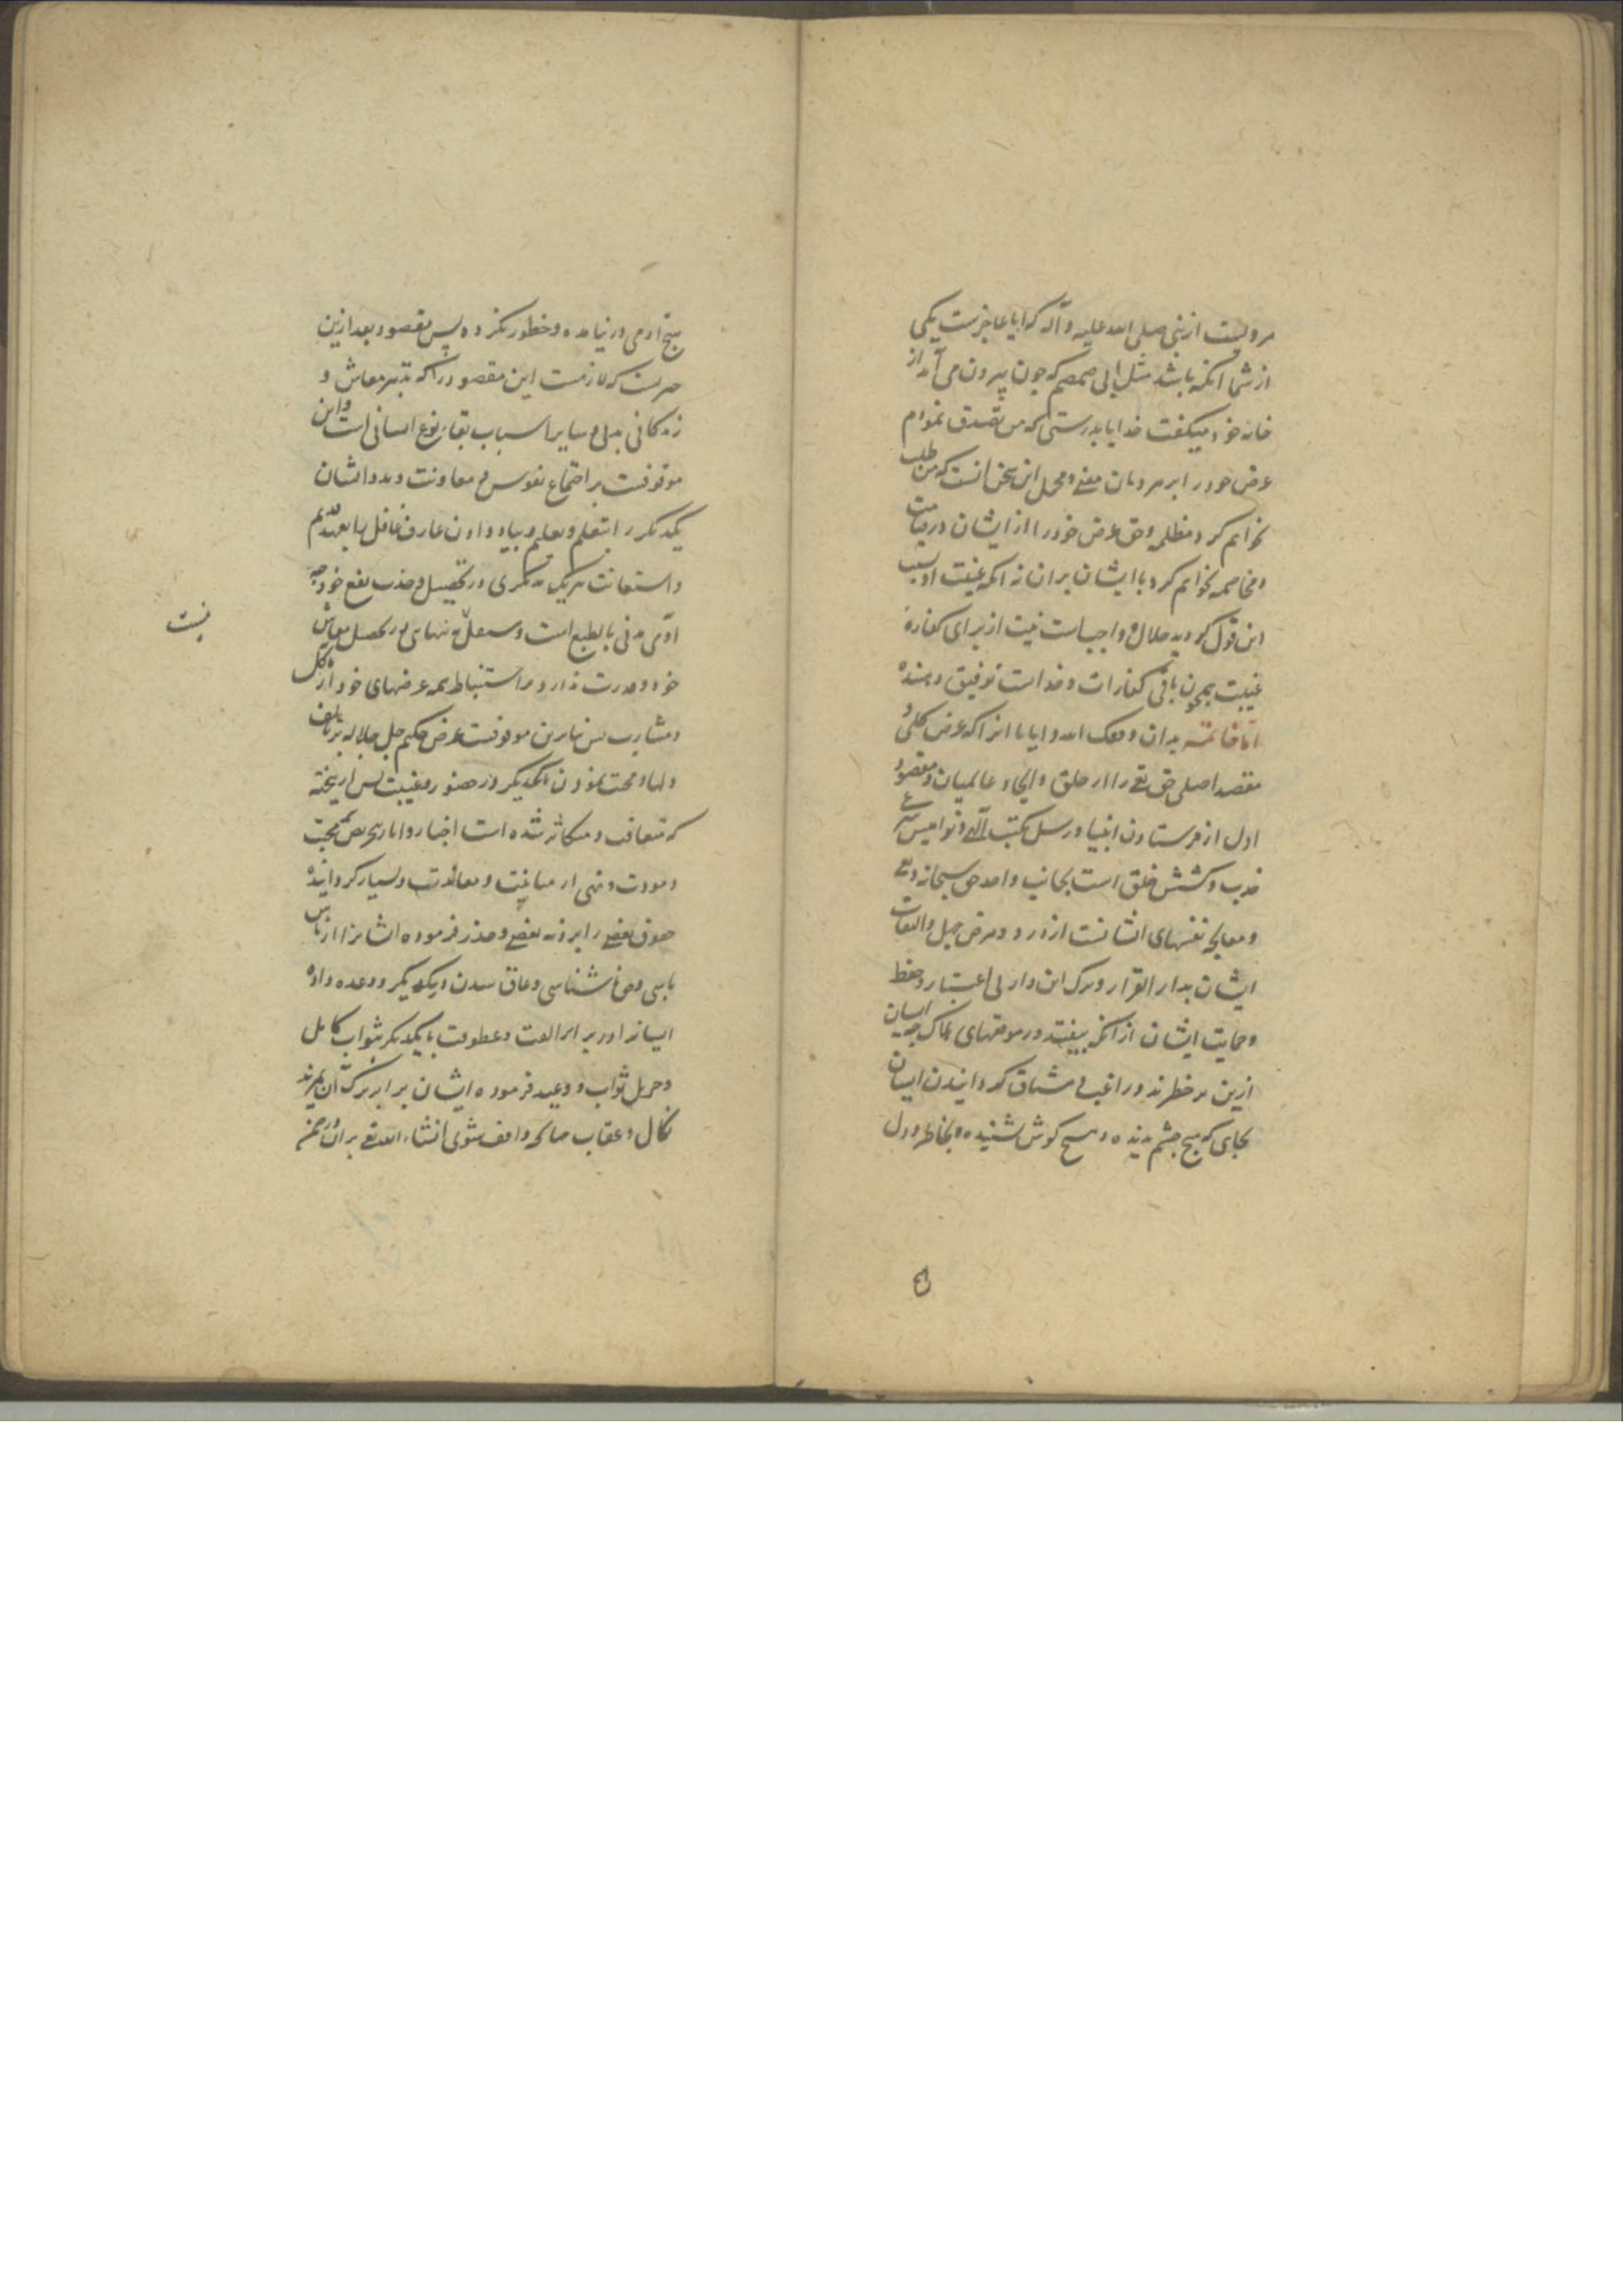 مرویست از نبی صلی الله علیه و آله که ایا عاجزست یکی
از شما انکه باشد مثل ابی ضمضم که چون بیرون می آمد از
خانه خود میکفت خدایا بدرستی که من تصدق نمودم
عرض خود را بر مردمان معنی و محمل این سخن انست که من طلب
نخواهم کرد مظلمه و حق عرض خود را از ایشان در قیامت
و مخاصمه نخواهم کرد با ایشان بر ان نه انکه غیبت او بسبب
این قول کردیده حلال و واجبست نیت از برای کفاره
غیبت همچون باقی کفارات و خداست توفیق دهنده
اما خاتمه بدان وفقک الله و ایانا انرا که غرض کلی و
مقصد اصلی حق تع را از خلق و ایجاد عالمیان و مقصود
اول از فرستادن انبیا و رسل بکتب آلهی و نوامیس شرعی
جذب و کشش خلق است بجانب واحد حق سبحانه و تع
و معالجه نفسهای انشانست از درد و مرض جهل و التفات
ایشان بدار القرار و ترک این دار بی اعتبار و حفظ
و حمایت ایشان از انکه بیفتند در موقعهای هلاک چه ایشان
ازین بر خطرند و راغب و مشتاق کردانیدن ایشان
بجای که هیچ چشم ندیده و هیچ کوش نشنیده و بخاطر و دل
هیچ ادمی در نیامده و خطور نکرده پس مقصود بعد ازین
چیزیست که لازمست این مقصود را که تدبیر معاش و
زندکانی بدنی و سایر اسباب بقاء نوع انسانی است و این
موقوفست بر اجتماع نفوس و معاونت و مدد انشان
یکدیکر را بتعلم و تعلیم و بیاد دادن عارف غافل را بعهد قدیم
و استعانت هر یک بدیکری در تحصیل و جذب نفع خود چه
ادمی مدنی بالطبع است و مستقل بتنهای در تحصیل معاش
نیست
خود و قدرت ندارد بر استنباط همه غرضهای خود از ماکل
و مشارب پس بنابرین موقوفست غرض حکیم جل جلاله بر تالف
دلها و محبت نمودن بیکدیکر در حضور و غیبت پس ازینجهة
که متعاقب و متکاثر شده است اخبار و اثار بتحریص بمحبت
و مودت و نهی از مباینت و معاندت و بسیار کردانیده
حقوق بعضی را بر ذمه بعضی و حذر فرموده انشانرا از ناس
باسی و حق ناشناسی و عاق شدن دریکدیکر و وعده داده
ایسانرا در برابر الفت و عطوفت با یکدیکر بثواب کامل
و جزیل ثواب و وعید فرموده ایشان برابر ترک آن بمزید
نکال و عقاب چنانکه واقف شوی انشاء الله تع بر ان در ضمن